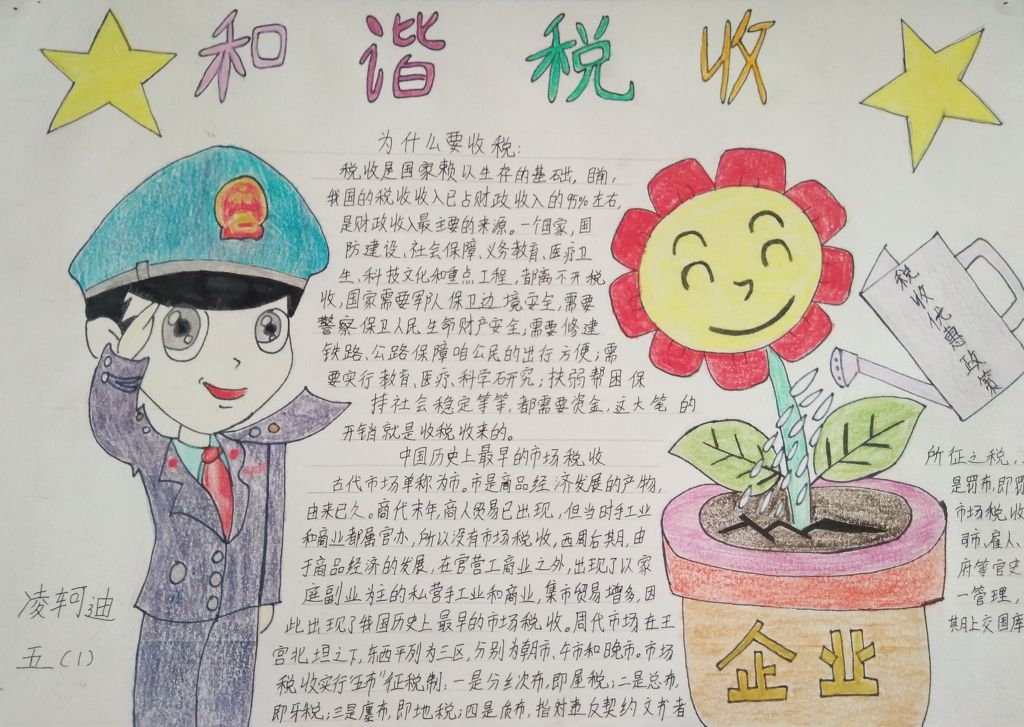 和谐税收
为什么要收税:
税收是国家赖以生存的基础,目前,
我国的税收收入已占财政收入的95%左右,
是财政收入最主要的来源。一个国家,国
防建设、社会保障、义务教育、医疗卫
生、科技文化和重点工程,都离不开税
收,国家需要军队保卫边境安全;需要
警察保卫人民生命财产安全;需要修建
铁路、公路保障咱公民的出行方便;需
要实行教育、医疗、科学研究;扶弱帮困保
持社会稳定等等,都需要资金,这大笔的
开销就是收税收来的。
中国历史上最早的市场税收
古代市场单称为市。市是商品经济发展的产物,
由来已久。商代末年,商人贸易已出现,但当时手工业
和商业都属官办,所以没有市场税收,西周后期,由
于商品经济的发展,在官营工商业之外,出现了以家
庭副业为主的私营手工业和商业,集市贸易增多,因
此出现了我国历史上最早的市场税收。周代市场在王
宫北垣之下,东西平列为三区,分别为朝市、午市和晚市。市场
税收实行"五布"征税制:一是次布,即屋税;二是总布,
即牙税;三是廛布,即地税;四是质布,指对违反契约文书者
所征之税,
是罚布,即罚
市场税收
司市、雇人、
府等官吏
一管理,
期上交国库
税收优惠政策
企业
凌轲迪
五(1)